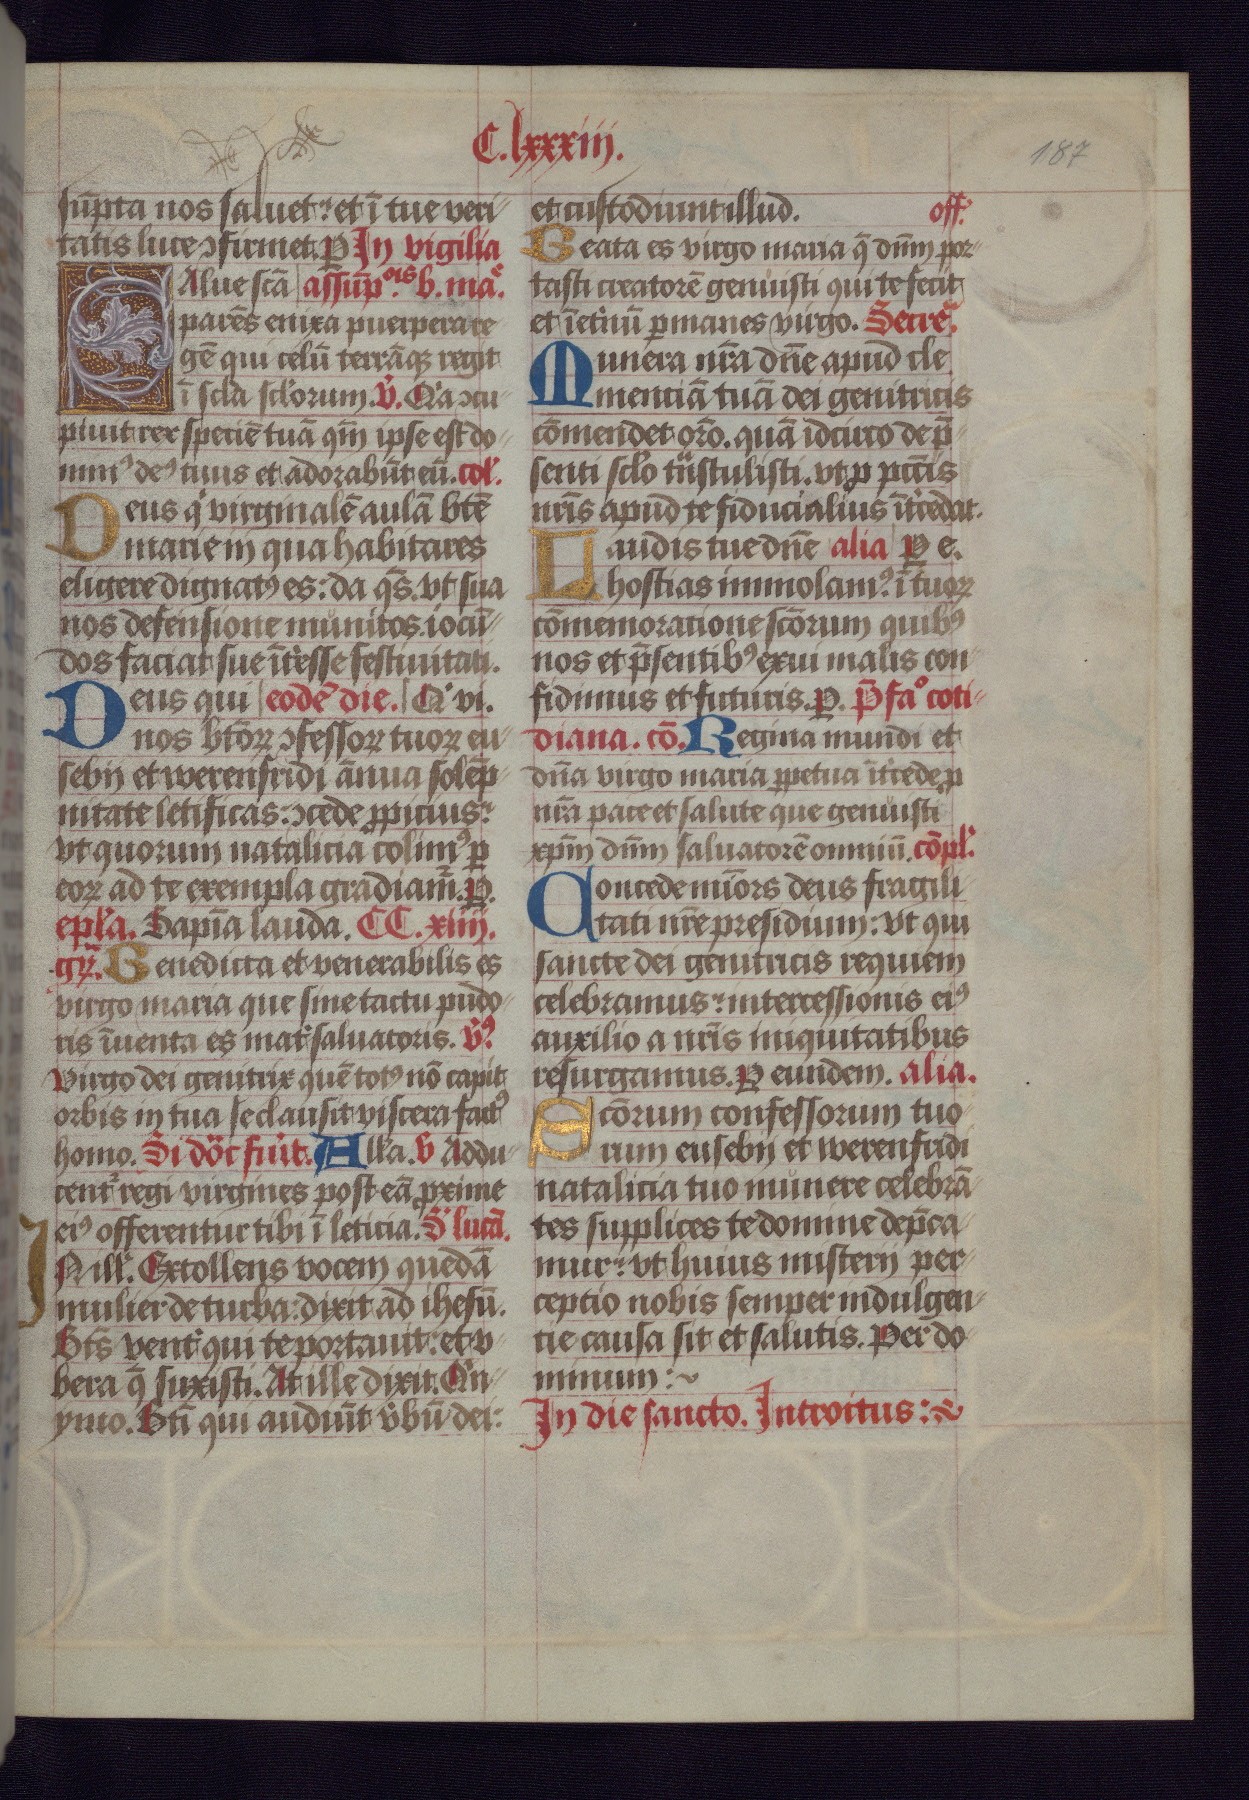 C.lxxxiij.
187
sūpta nos saluet: et ī tue veri-
tatis luce ɔfirmet. P In vigilia
SAlue scā assūpᵒⁱˢ b. maᵉ.
parēs enixa puerpera re-
gē qui celū terrāqꝫ regit
ī scła scłorum. V. Qᵃ ɔcu-
piuit rex speciē tuā qm̄ ipse est do-
minꝰ deꝰ tuus et adorabūt eū. col'.
Deus qͥ virginalē aulā btē
marie in qua habitares
eligere dignatꝰ es: da qs̄. vt sua
nos defensione munitos. iocū-
dos faciat sue īt'esse festiuitati.
Deus qui eodē die. Qͥ vi.
nos btōꝝ ɔfessoꝝ tuoꝝ eu-
sebij et werenfridi ānua solēp-
nitate letificas: ɔcede ꝓpicius:
vt quorum natalicia colimꝰ ꝑ
eoꝝ ad te exempla gradiamᷣ. P.
epl'a. Sapīa lauda. CC. xiiij.
gr̄. Benedicta et venerabilis es
virgo maria que sine tactu pudo-
ris īuenta es mat' saluatoris. Vꝰ
Virgo dei genitrix quē totꝰ nō capit
orbis in tua se clausit viscera factꝰ
homo. Si dōc fu'it. All'a. V Addu-
cent' regi virgines post eā ꝓxime
eiꝰ offerentur tibi ī leticia. S' lucā.
IN ill'. Extollens vocem quedā
mulier de turba: dixit ad ihesū.
Bts̄ vent' qui te portauit: et v-
bera q̄ suxisti. At ille dixit. Qīn-
ymo. Btī qui audiūt v'bū dei:
et custodiunt illud. off'.
Beata es virgo maria q̄ dn̄m por-
tasti creatorē genuisti qui te fecit
et īet'nū ꝑmanes virgo. Secreᵃ.
Munera nr̄a dn̄e apud cle
menciā tuā dei genitricis
cōmendet or̄o. quā idcirco de p̄-
senti scło tͣnstulisti. vt ꝓ pctīs
nr̄is apud te fiducialius īt'cedat.
Laudis tue dn̄e alia P e.
hostias immolamꝰ. ī tuoꝝ
cōmemoratione scōrum quibꝰ
nos et p̄sentibꝰ exui malis con-
fidimus et futuris. P. P̄faᵒ coti-
diana. cō. Regina mundi et
dn̄a virgo maria ꝑpetua īt'cede ꝓ
nr̄a pace et salute que genuisti
xp̄m dn̄m saluatorē omniū. cōpl'.
Concede mīors deus fragili-
tati nr̄e presidium: vt qui
sancte dei genitricis requiem
celebramus: intercessionis eiꝰ
auxilio a nr̄is iniquitatibus
resurgamus. P eundem. alia.
Scōrum confessorum tuo-
rum eusebij et werenfridi
natalicia tuo munere celebrā-
tes supplices te domine dep̄ca-
mur: vt huius misterij per-
ceptio nobis semper indulgen-
tie causa sit et salutis. Per do-
minum:~
In die sancto. Introitus:~